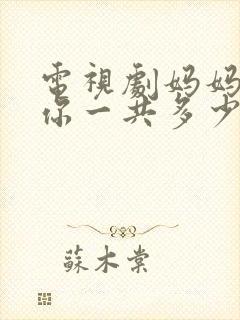 電視劇妈妈
你一共多少
蘇木棠